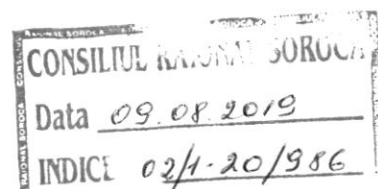 CONSILIUL RAIONAL SOROCA
Data 09.08.2019
INDICE 02/1-20/986